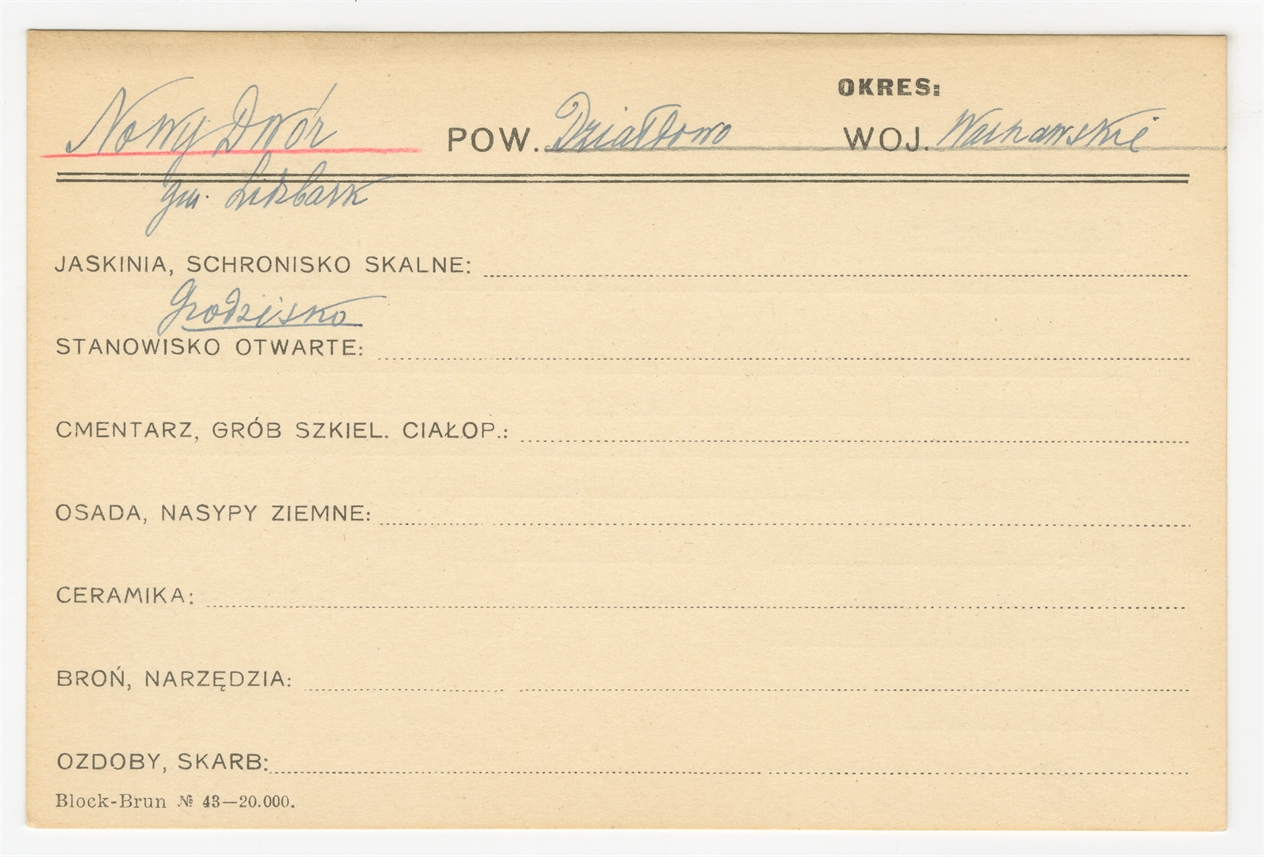 OKRES:
Nowy Dwór POW. Działdowo WOJ. Warszawskie
gm. Lidzbark
JASKINIA, SCHRONISKO SKALNE:
Grodzisko
STANOWISKO OTWARTE:
CMENTARZ, GRÓB SZKIEL. CIAŁOP.:
OSADA, NASYPY ZIEMNE:
CERAMIKA:
BROŃ, NARZĘDZIA:
OZDOBY, SKARB:
Block-Brun № 43—20.000.